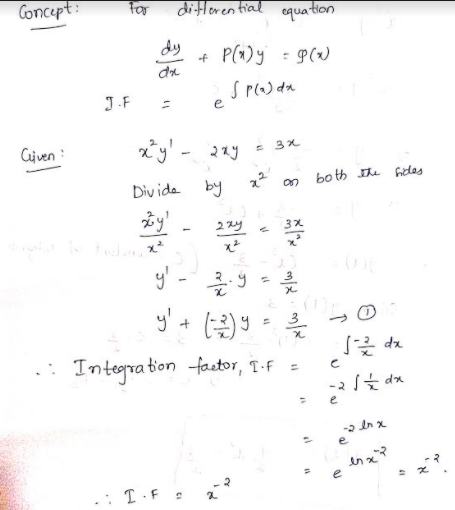 Concept: For differential equation
dy/dx + P(x)y = Q(x)
I.F = e^∫P(x)dx
Given: x²y' - 2xy = 3x
Divide by x² on both the sides
x²y'/x² - 2xy/x² = 3x/x²
y' - 2/x · y = 3/x
y' + (-2/x) y = 3/x → ①
∴ Integration factor, I.F = e^∫-2/x dx
= e^-2∫1/x dx
= e^-2 ln x
= e^ln x^-2 = x^-2.
∴ I.F = x^-2